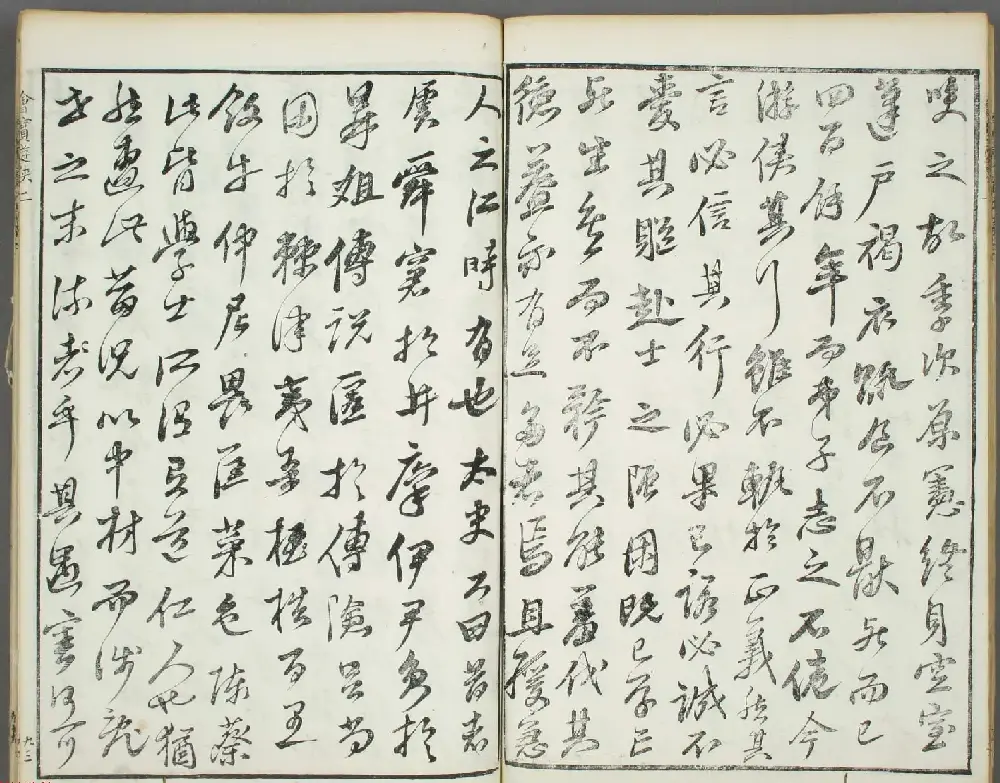 咲之故季次原憲終身空室
蓬戶褐衣疏食不厭死而已
四百餘年而弟子志之不倦今
游俠其行雖不軌於正義然其
言必信其行必果已諾必誠不
愛其軀赴士之阨困既已存亡
死生矣而不矜其能羞伐其
德蓋亦有足多者焉且緩急
人之所時有也太史公曰昔者
虞舜窘於井廩伊尹負於
鼎俎傅說匿於傅險呂尚
困於棘津夷吾桎梏百里
飯牛仲尼畏匡菜色陳蔡
此皆學士所謂有道仁人也猶
然遭此菑況以中材而涉亂
世之末流者乎其遇害何可